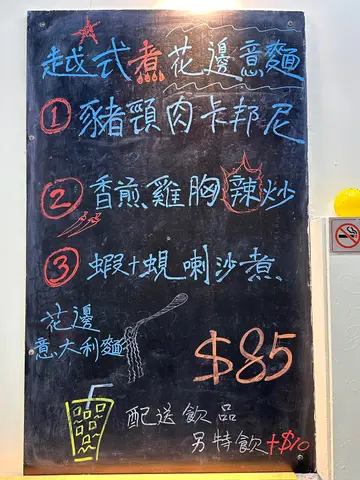 越式煮花邊意麵
① 豬頸肉卡邦尼
② 香煎雞胸辣炒
③ 蝦+蜆喇沙煮
花邊
意大利麵
$85
配送飲品
另特飲+$10